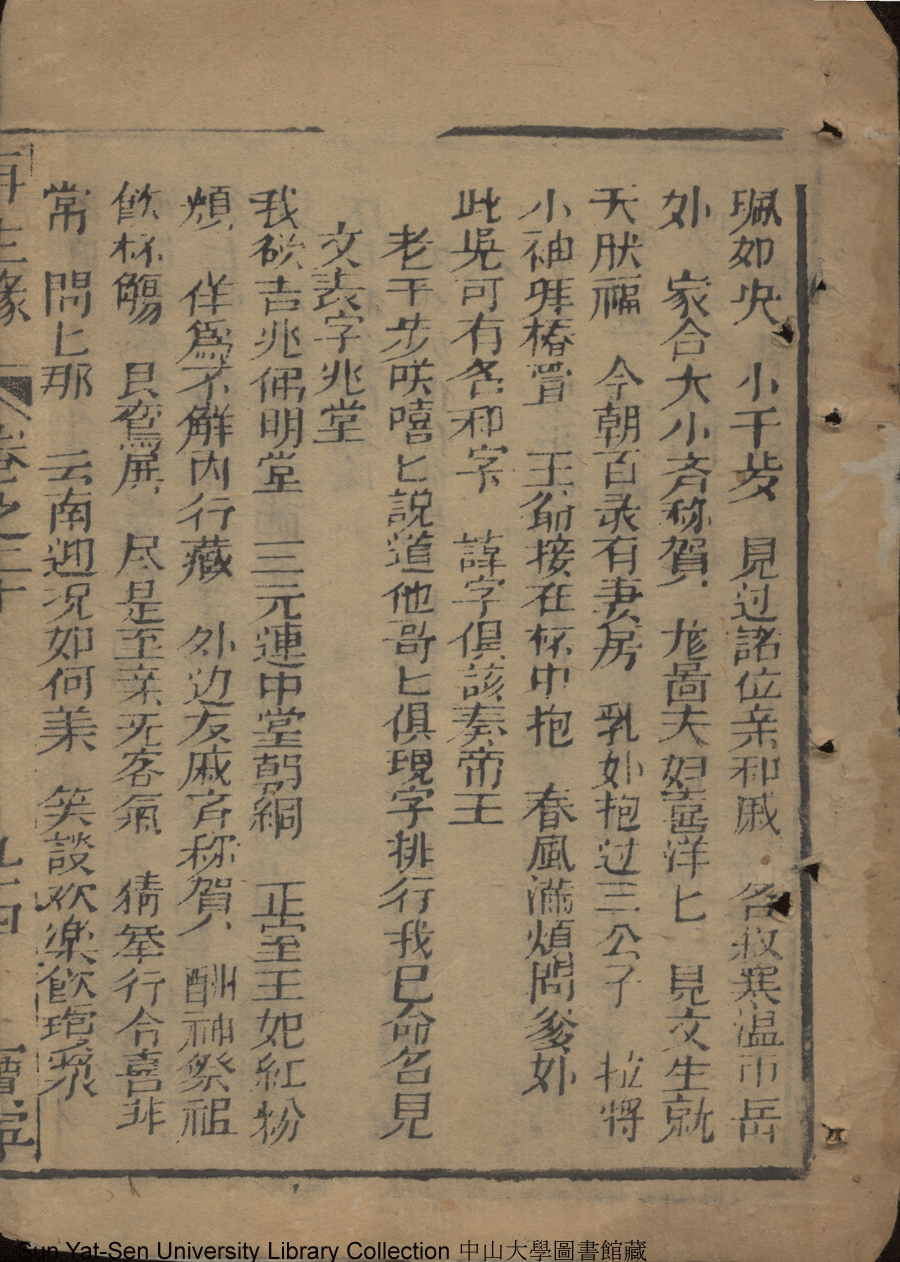 珮如央　小千步　見过諸位亲和戚　各叙寒温市岳
外　家合大小斉称賀　夫妇喜洋匕　見文生就
天肤福　今朝百录有妻房　乳妳抱过三公子　拉將
小袖椿萱　王翁接在杯中抱　春風滿煩問爹外
此吳可有名和字　諱字俱該奏帝王
老千步咲嘻匕説道他哥匕俱現字排行我已命名見
文表字兆堂
我欲吉兆偶明堂　三元連中堂朝綱　正宮至王妃紅粉
煩　佯為不解內行藏　外边友戚斉称賀　酬神祭祖
飲杯觴　艮鸞屏　尽是至亲无客氣　猜拳行令喜非
常　問匕那　云南迎况如何美　笑談欢樂飲瓊漿
再生緣　卷之二十　九十四　會宇
Sun Yat-Sen University Library Collection 中山大學圖書館藏